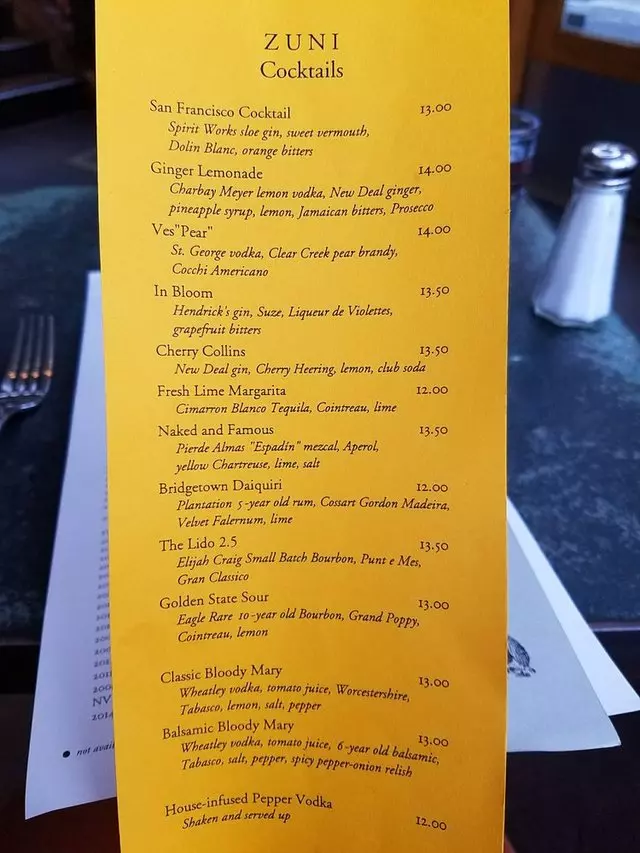 ZUNI
Cocktails
San Francisco Cocktail 13.00
Spirit Works sloe gin, sweet vermouth,
Dolin Blanc, orange bitters
Ginger Lemonade 14.00
Charbay Meyer lemon vodka, New Deal ginger,
pineapple syrup, lemon, Jamaican bitters, Prosecco
Ves"Pear" 14.00
St. George vodka, Clear Creek pear brandy,
Cocchi Americano
In Bloom 13.50
Hendrick's gin, Suze, Liqueur de Violettes,
grapefruit bitters
Cherry Collins 13.50
New Deal gin, Cherry Heering, lemon, club soda
Fresh Lime Margarita 12.00
Cimarron Blanco Tequila, Cointreau, lime
Naked and Famous 13.50
Pierde Almas "Espadín" mezcal, Aperol,
yellow Chartreuse, lime, salt
Bridgetown Daiquiri 12.00
Plantation 5-year old rum, Cossart Gordon Madeira,
Velvet Falernum, lime
The Lido 2.5 13.50
Elijah Craig Small Batch Bourbon, Punt e Mes,
Gran Classico
Golden State Sour 13.00
Eagle Rare 10-year old Bourbon, Grand Poppy,
Cointreau, lemon
Classic Bloody Mary 13.00
Wheatley vodka, tomato juice, Worcestershire,
Tabasco, lemon, salt, pepper
Balsamic Bloody Mary 13.00
Wheatley vodka, tomato juice, 6-year old balsamic,
Tabasco, salt, pepper, spicy pepper-onion relish
House-infused Pepper Vodka 12.00
Shaken and served up
NV
2014
not avai